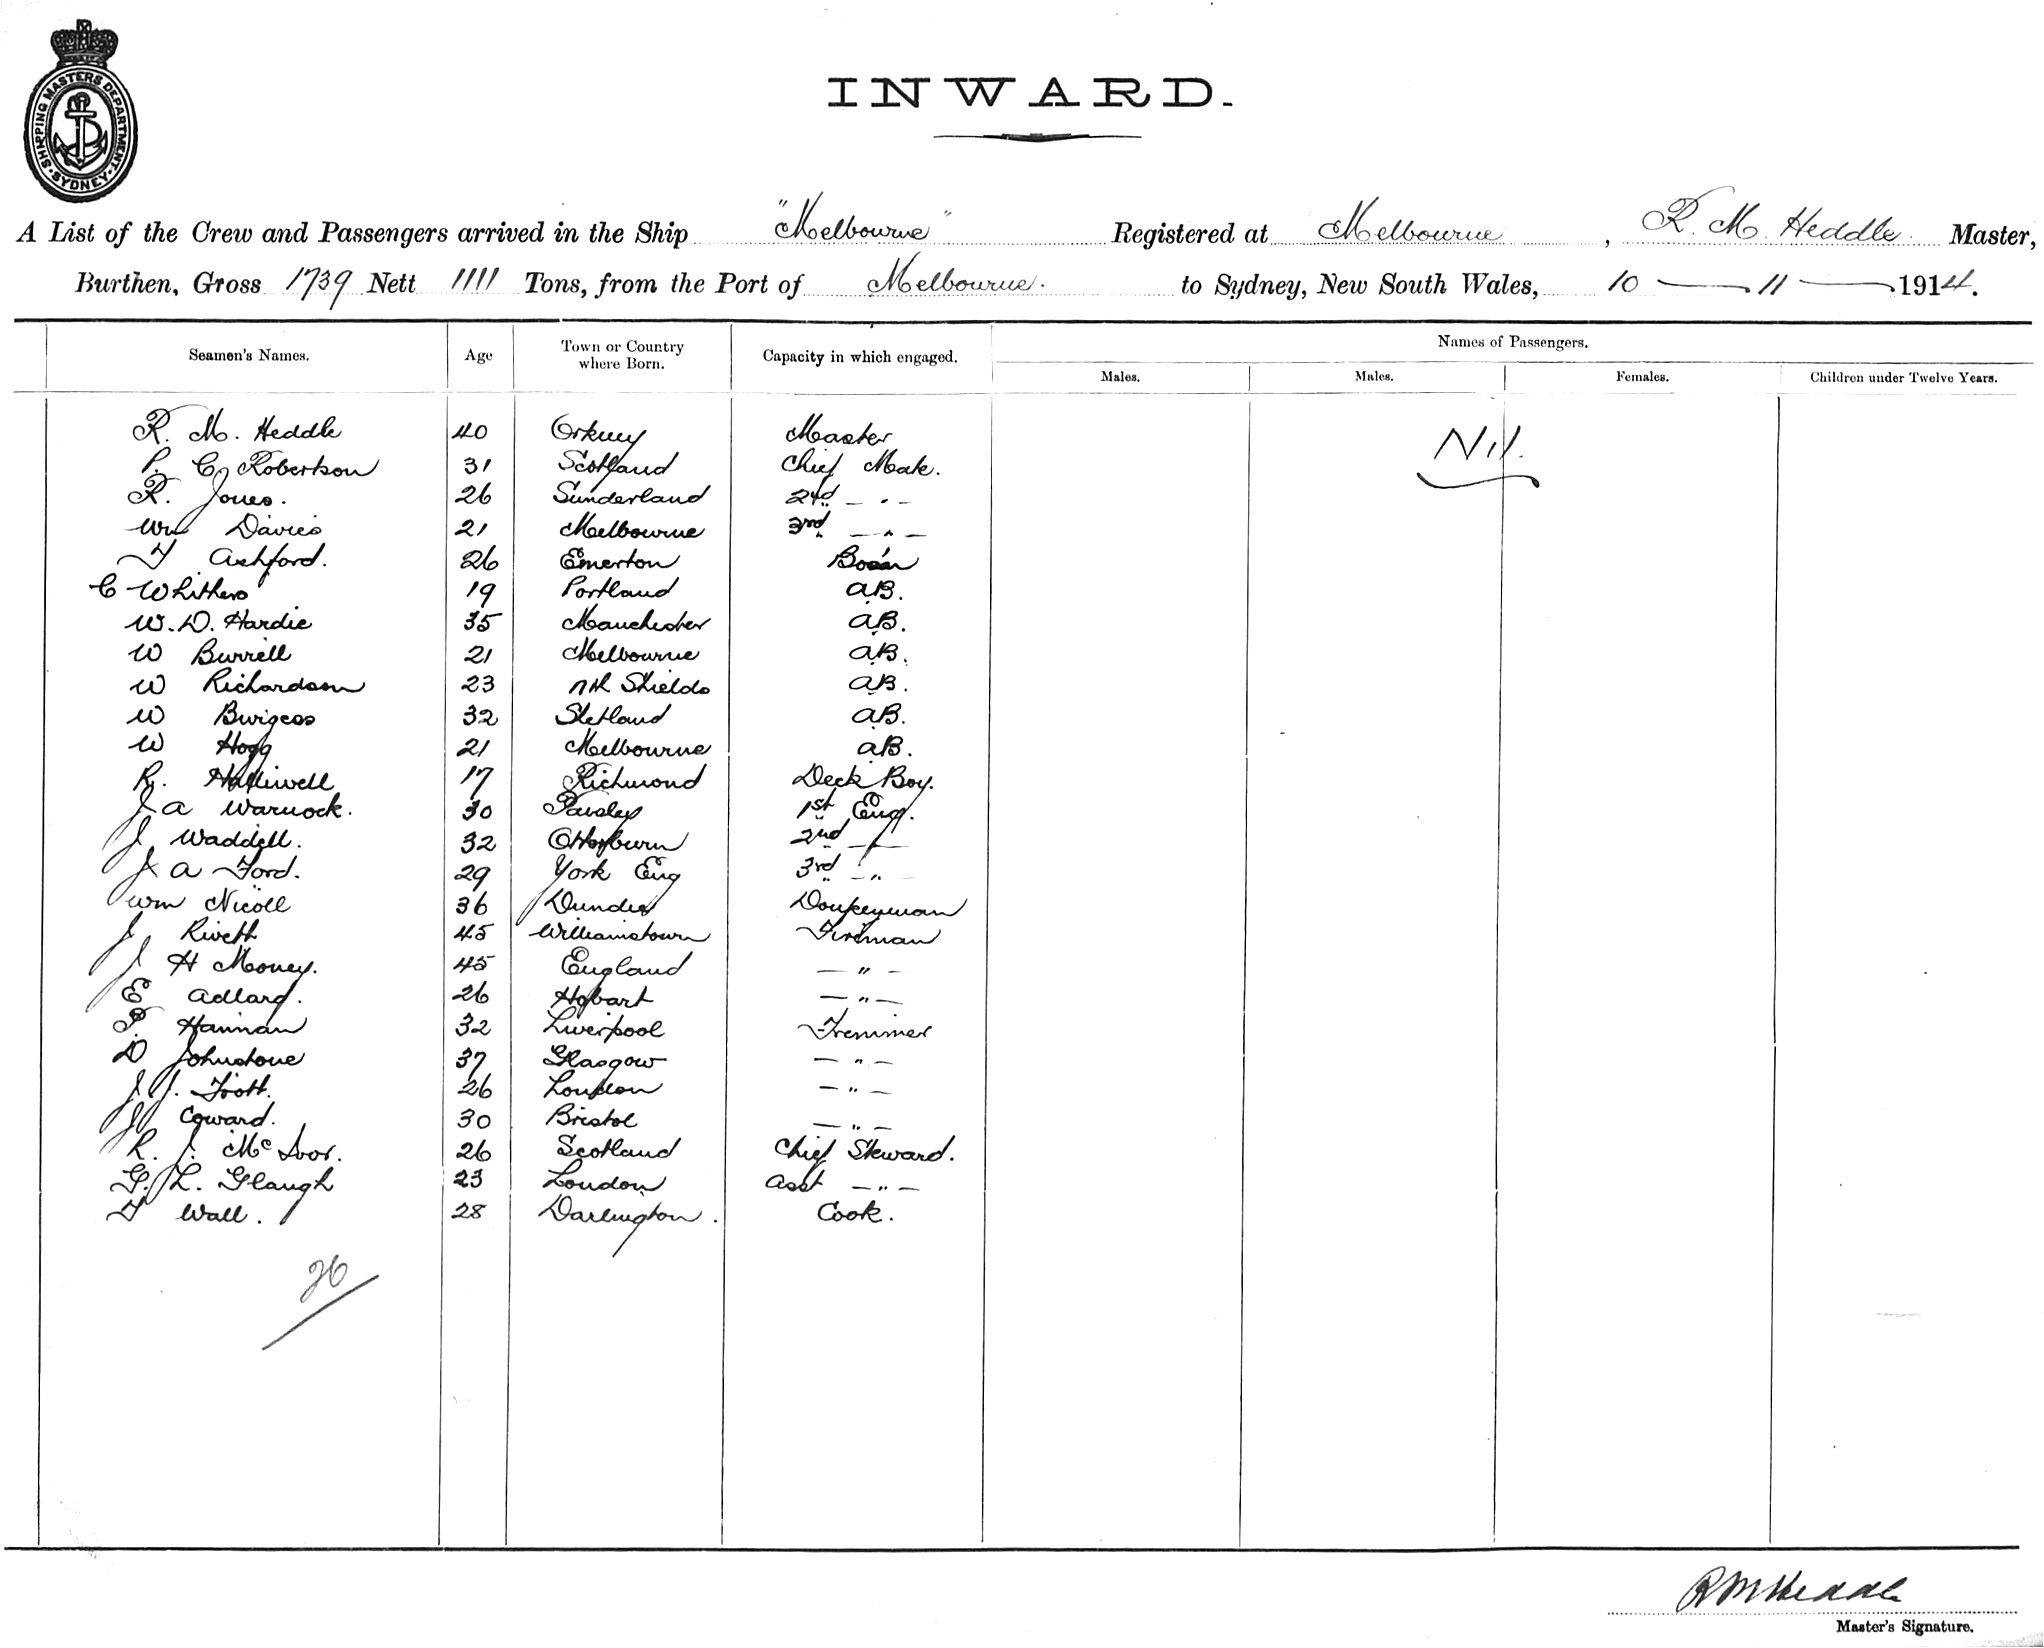 SHIPPING MASTERS DEPARTMENT · SYDNEY ·
INWARD.
A List of the Crew and Passengers arrived in the Ship "Melbourne" Registered at Melbourne, R. M. Heddle Master,
Burthen, Gross 1739 Nett 1111 Tons, from the Port of Melbourne. to Sydney, New South Wales, 10 — 11 — 1914.
Seamen's Names. Age Town or Country where Born. Capacity in which engaged. Names of Passengers.
Males. Males. Females. Children under Twelve Years.
R. M. Heddle 40 Orkney Master Nil.
P. C. Robertson 31 Scotland Chief Mate.
R. Jones. 26 Sunderland 2nd — " —
Wm Davies 21 Melbourne 3rd — " —
F Ashford. 26 Emerton Bosan
C Whithers 19 Portland A.B.
W. D. Hardie 35 Manchester A.B.
W Burrell 21 Melbourne A.B.
W Richardson 23 Nth Shields A.B.
W Burgess 32 Shetland A.B.
W Hogg 21 Melbourne A.B.
R. Halliwell 17 Richmond Deck Boy.
J A Warnock. 30 Paisley 1st Eng.
J Waddell. 32 2nd — " —
J A Ford. 29 York Eng 3rd — " —
Wm Nicoll 36 Dundee Donkeyman
J Rivett 45 Williamstown Fireman
J H Money. 45 England — " —
E Adlard. 26 Hobart — " —
P. Hannan 32 Liverpool Tremmer
D Johnstone 37 Glasgow — " —
J J. Trott. 26 London — " —
J Coward. 30 Bristol — " —
R. J. McIvor. 26 Scotland Chief Steward.
G. L. 23 London Asst — " —
F Wall. 28 Darlington. Cook.
26
R M Heddle
Master's Signature.